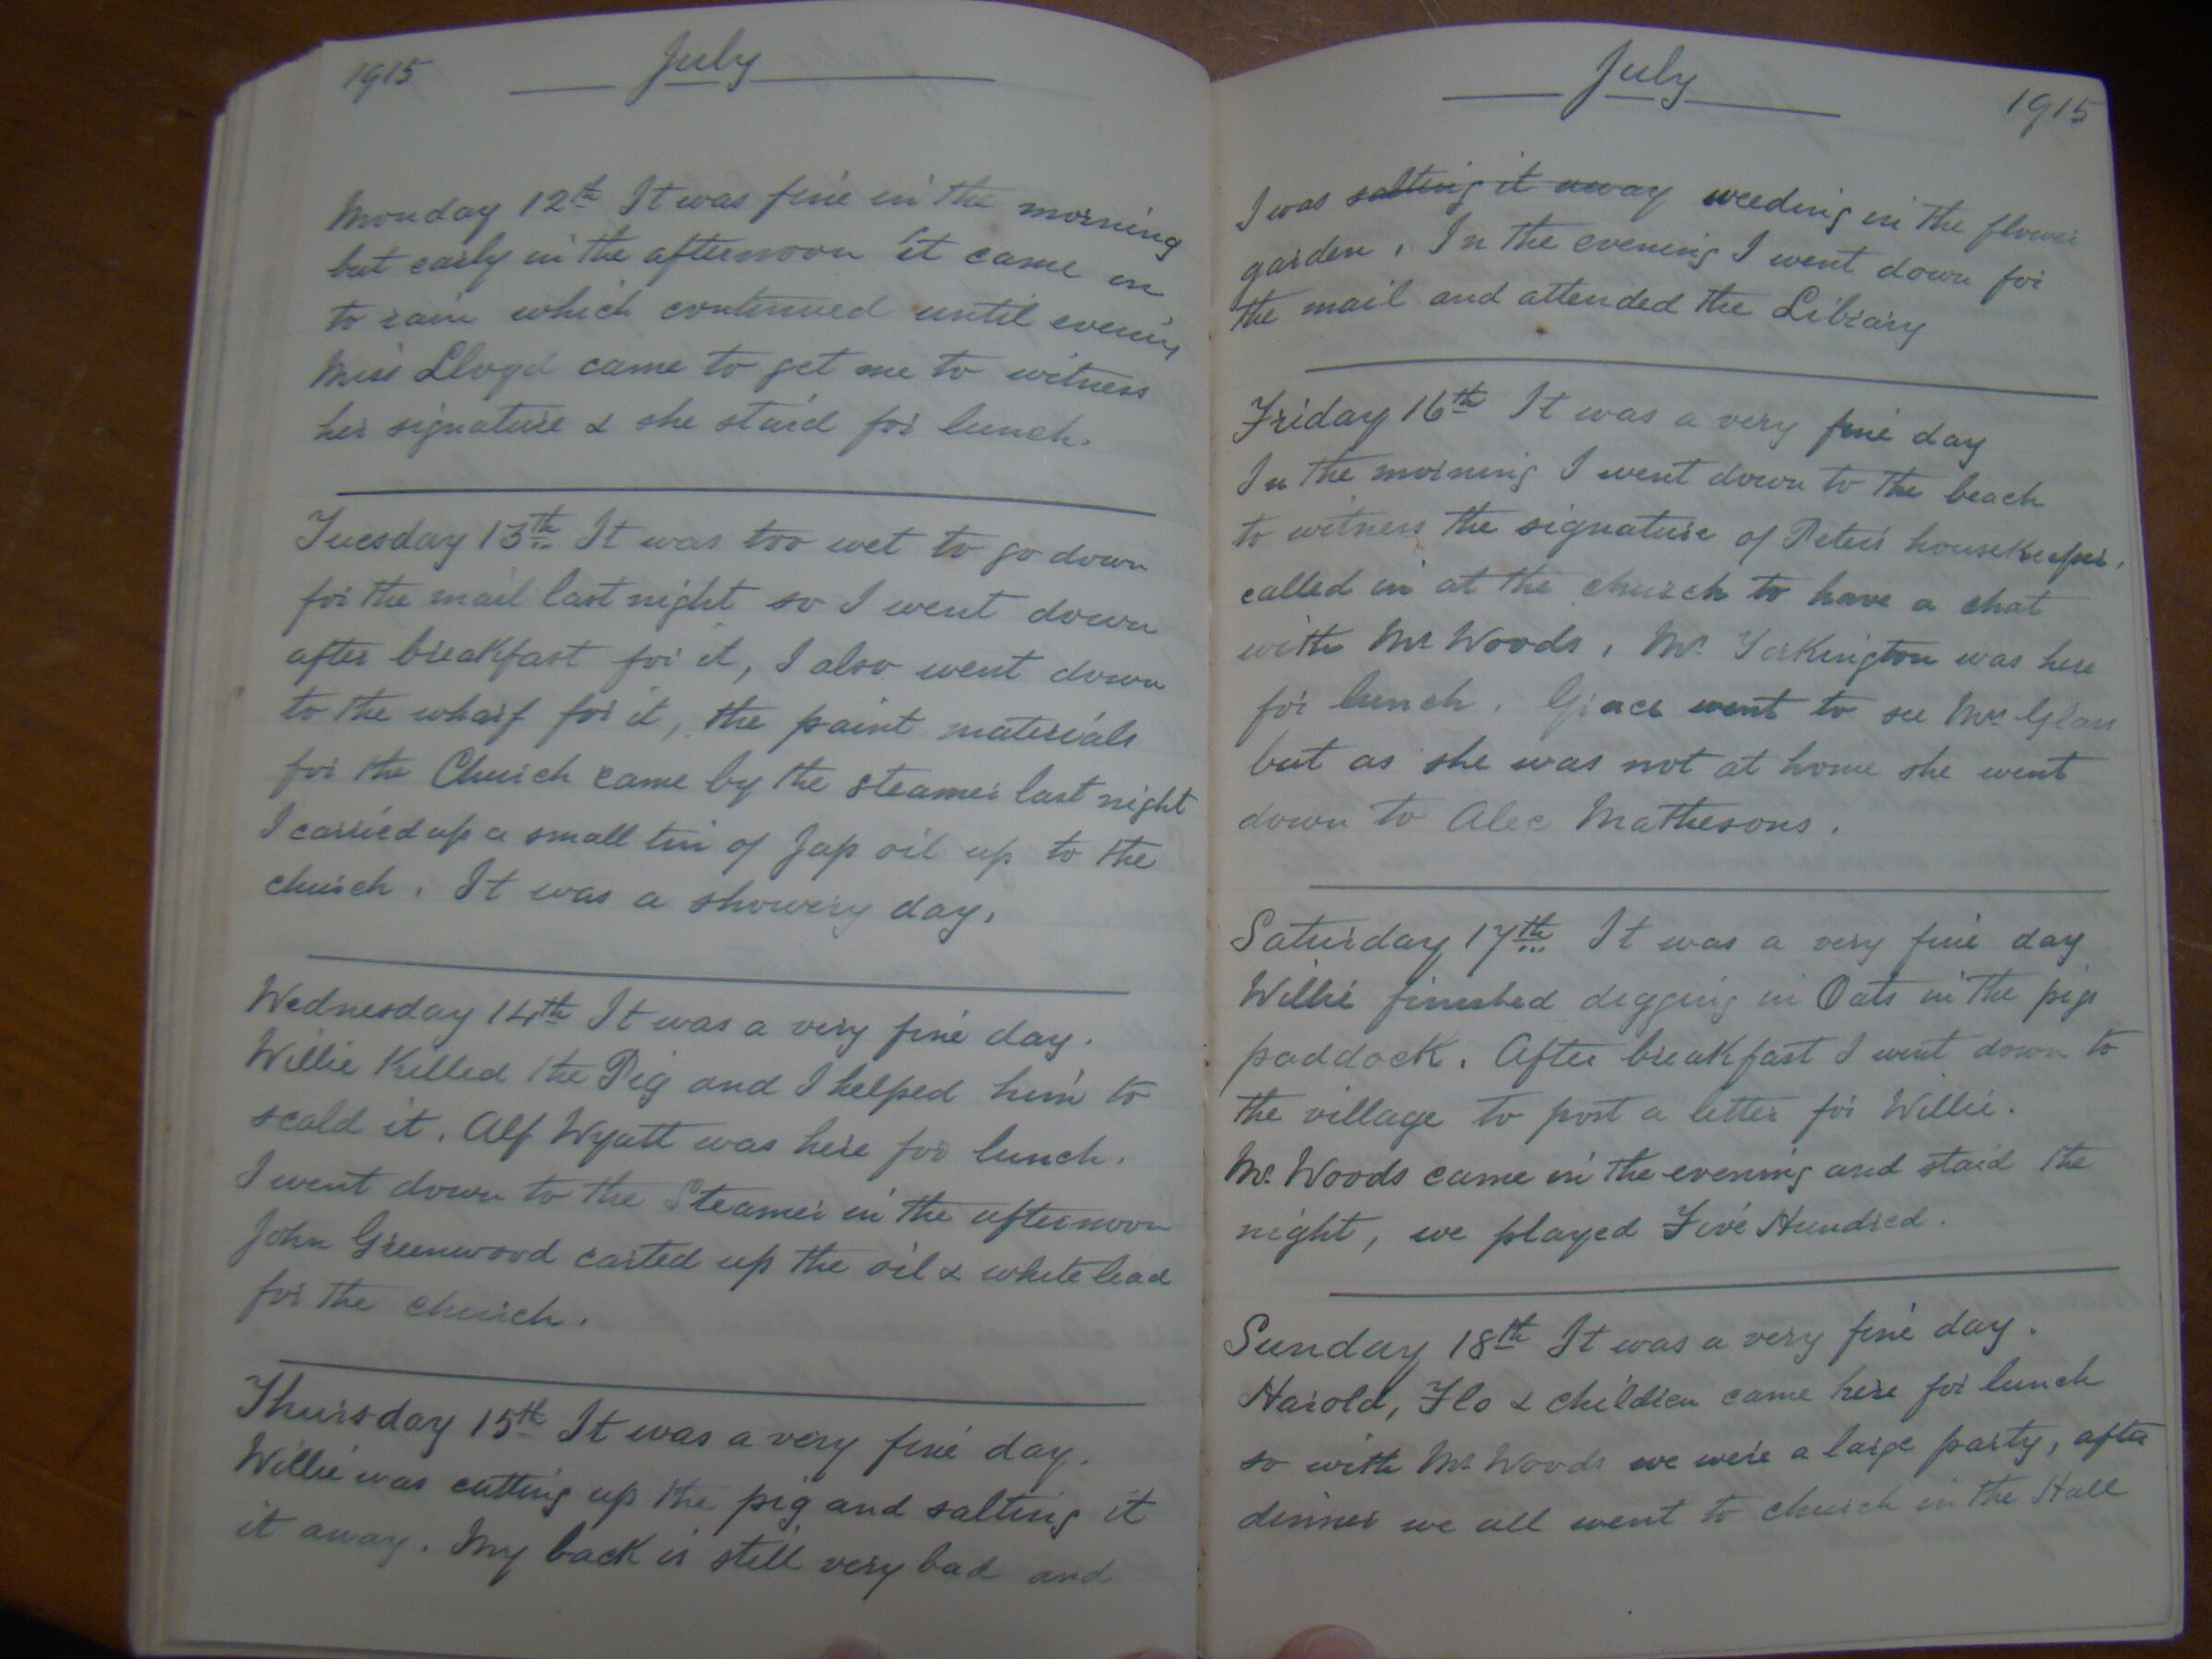 1915 July
Monday 12th It was fine in the morning
but early in the afternoon it came on
to rain which continued until evening
Miss Lloyd came to get me to witness
her signature & she staid for lunch.
Tuesday 13th It was too wet to go down
for the mail last night so I went down
after breakfast for it, I also went down
to the wharf for it, the paint materials
for the Church came by the steamer last night
I carried up a small tin of Jap oil up to the
church. It was a showery day.
Wednesday 14th It was a very fine day.
Willie Killed the Pig and I helped him to
scald it. Alf Wyatt was here for lunch.
I went down to the Steamer in the afternoon
John Greenwood carted up the oil & white lead
for the church.
Thursday 15th It was a very fine day.
Willie was cutting up the pig and salting it
it away. My back is still very bad and
July 1915
I was salting it away weeding in the flower
garden. In the evening I went down for
the mail and attended the Library
Friday 16th It was a very fine day
In the morning I went down to the beach
to witness the signature of Peters housekeeper.
called in at the church to have a chat
with Mr Woods. Mr. was here
for lunch. Grace went to see Mrs Glass
but as she was not at home she went
down to Alec Mathesons.
Saturday 17th It was a very fine day
Willie finished digging in Oats in the pigs
paddock. After breakfast I went down to
the village to post a letter for Willie.
Mr. Woods came in the evening and staid the
night, we played Five Hundred.
Sunday 18th It was a very fine day.
Harold, Flo & children came here for lunch
so with Mr Woods we were a large party, after
dinner we all went to church in the Hall